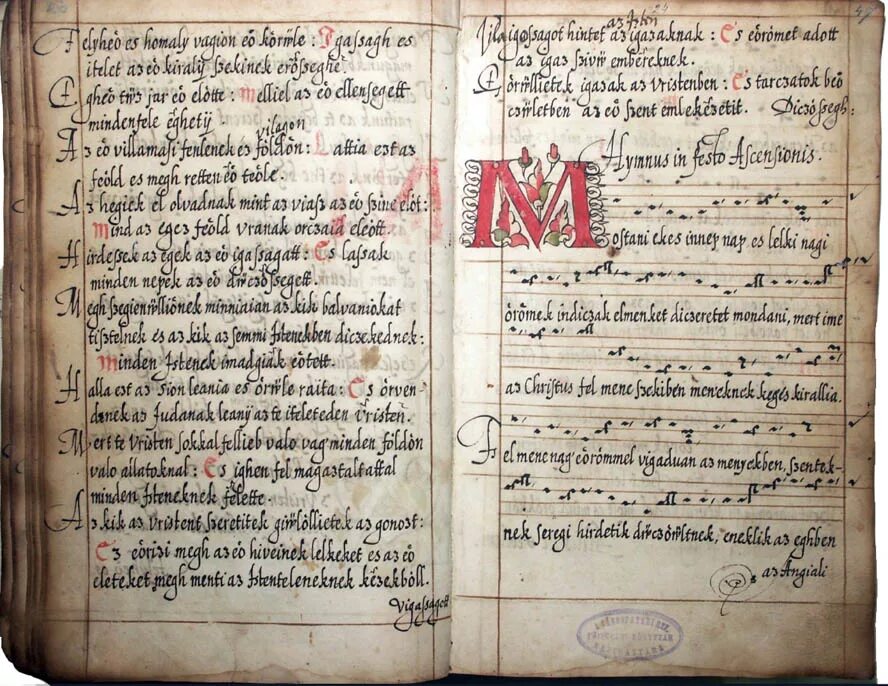 Felyheö es homaly vagion eö körwle: Igassagh es
itelet az eö kiraly szekinek erösseghe
Egheö twz jar eö elötte: Melliel az eö ellensegett
mindenfele eghetÿ
vilagon
Az eö villamasi fenlenek eö földön: Lattia ezt az
feöld es megh retten eö teöle.
Az hegiek el olvadnak mint az viasz az eö szine elöt:
Mind az egez feöld vranak orczaia eleött.
Hirdessek az egek az eö igassagatt: Es lassak
minden nepek az eö diczösseget.
Megh szegienwllienek minniaian az kik balvaniokat
tisztelnek es az kik az semmi Istenekben diczekednek:
Minden Istenek imadgiak eötett.
Halla ezt az Sion leania es örwle raita: Es örven-
dezenek az Judanak leanÿ az te iteleteden Vristen.
Mert te Vristen sokkal fellieb valo vagÿ minden földön
valo allatoknal: Es ighen fel magaztaltattal
minden Isteneknek felette.
Az kik az Vristent szeretitek giwlöllietek az gonozt:
Ez eörizi megh az eö hiveinek lelkeket es az eö
eleteket megh menti az Istenteleneknek kezekböll.
Vigassagott
47
az Isten
Vigassagot hintet az igazaknak: Es eörömet adott
az igaz szivü embereknek.
Eörwllietek igazak az Vristenben: Es tarczatok beö
czwletben az eö szent emlekezetit. Diczössegh:
Hymnus in festo Ascensionis.
Mostani ekes innep nap es lelki nagi
örömek indiczak elmenket diczeretet mondani, mert ime
az Christus fel mene szekiben meneknek kegës kirallia.
Fel mene nagÿ eörömmel vigaduan az menyekben, szentek-
nek seregi hirdetik diczöwltnek, eneklik az eghben
az Angiali